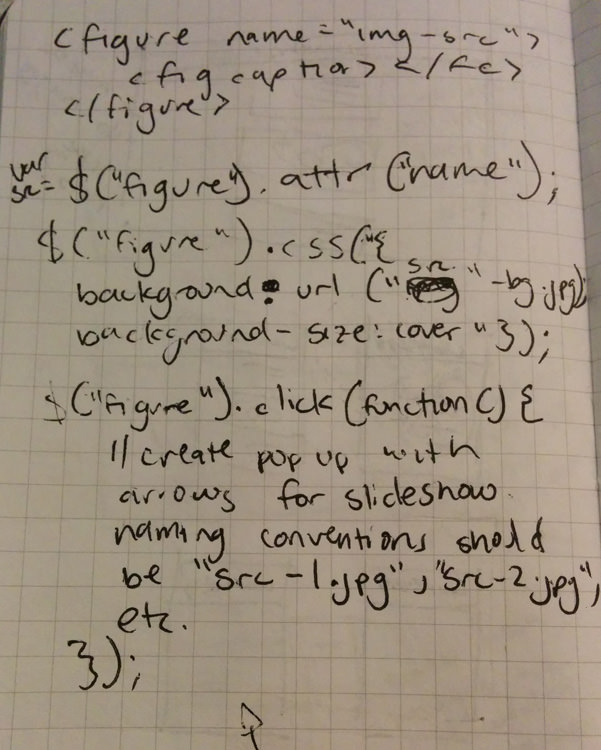 <figure name="img-src">
<figcaption> </fc>
</figure>
var
src= $("figure"). attr ("name");
$("figure").css("{
background: url ("src." -bg.jpg)
background-size: cover "});
$("figure"). click (function() {
// create pop up with
arrows for slideshow.
naming conventions should
be "src-1.jpg", "src-2.jpg",
etc.
});